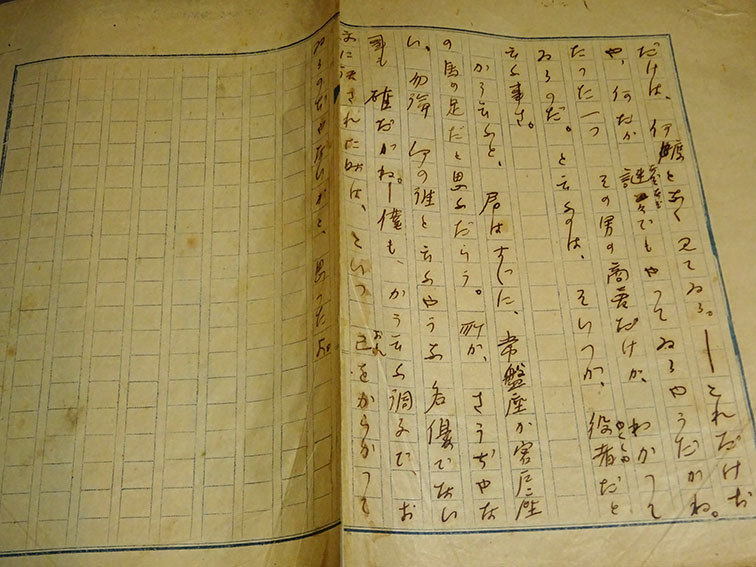 だけは、何度となく見てゐる。――これだけぢ
や、何だか謎々でもやつてゐるやうだがね。
たつた一つその男の商売だけが、わかつて
ゐるのだ。と云ふのは、そいつが、役者だと
云ふ事さ。
かう云ふと、君はすぐに、常盤座か宮戸座
の馬の足だと思ふだらう。所が、さうぢやな
い。勿論何の誰と云ふやうな名優でない
事も確だがね。――僕も、かう云ふ調子で、お
文に話された時は、こいつ己をからかつて
ゐるのぢやないかと、思つたよ。